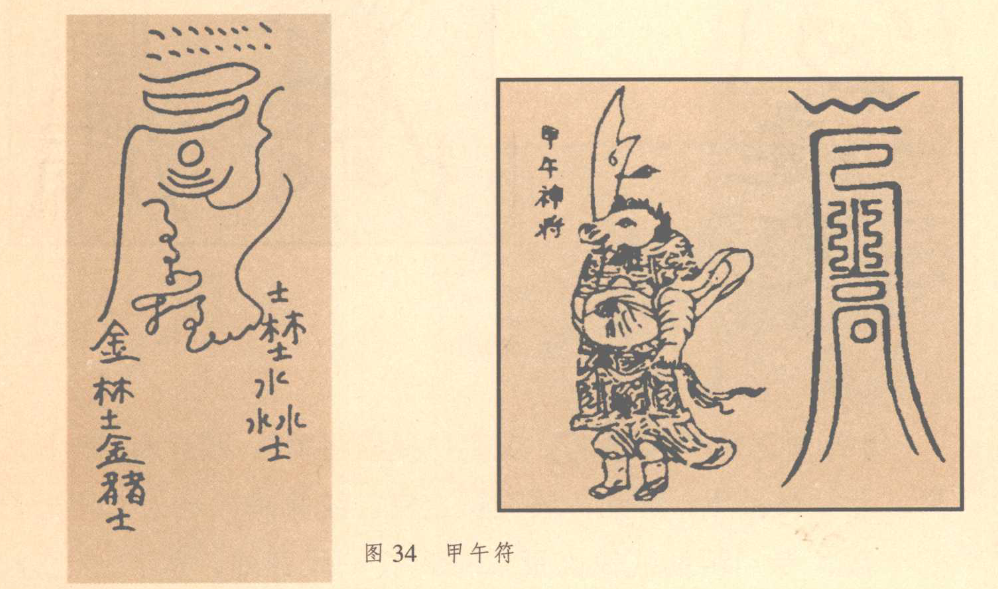 金
林
土
金
土
士
林
土
水
水水
士
甲午神将
图34 甲午符